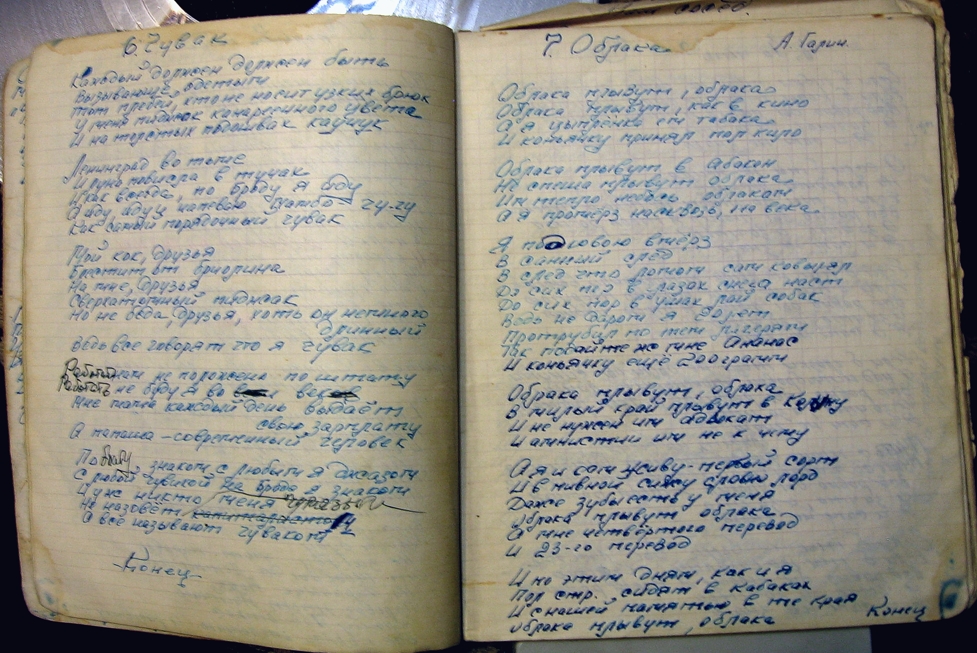 6. Чувак
Каждый должен должен быть
Вызывающе одетым
Тот плебей, кто не носит узких брюк
У меня пиджак канареечного цвета
И на толстых подошвах каучук
Ленинград во тьме
И луна повисла в тучах
И как всегда, по Броду я иду
А иду иду и напеваю самбо гу-гу
Как самый порядочный чувак
Мой кок, друзья
Блестит от бриолина
На мне, друзья
Сверхмодный пиджак
Но не беда, друзья, хоть он немного
длинный
Ведь все говорят что я чувак
не положена по штату
Работать не буду я во век
Мне папа каждый день выдаёт
свою зарплату
А папаша - современный человек
По знаком с любым я джазом
С любой чувихой на Броде я знаком
И уж никто меня
Не назовёт
А все называют чуваком
Конец
7. Облака
А. Галич.
Облака плывут, облака
Облака плывут, как в кино
А я цыплёнка ем табака
И коньячку принял пол кило
Облака плывут в Абакан
Не спеша плывут облака
Им тепло небось облакам
А я промёрз насквозь, на века
Я подковою вмёрз
В санный след
В след что ломом сам ковырял
До сих пор в глазах снега наст
До сих пор в ушах лай собак
Ведь не даром я 20 лет
Протрубил по тем лагерям
Так подайте же мне Ананас
И коньячку ещё 200 грамм
Облака плывут, облака
В милый край плывут в Колыму
И не нужен им адвокат
И амнистии им не к чему
А я и сам живу - первый сорт
И в пивной сижу словно лорд
Даже зубы есть у меня
Облака плывут облака
А мне четвёртого перевод
И 23-го перевод
И по этим дням, как и я
Пол стр. сидят в кабаках
И с нашей памятью в те края
Облака плывут, облака
Конец